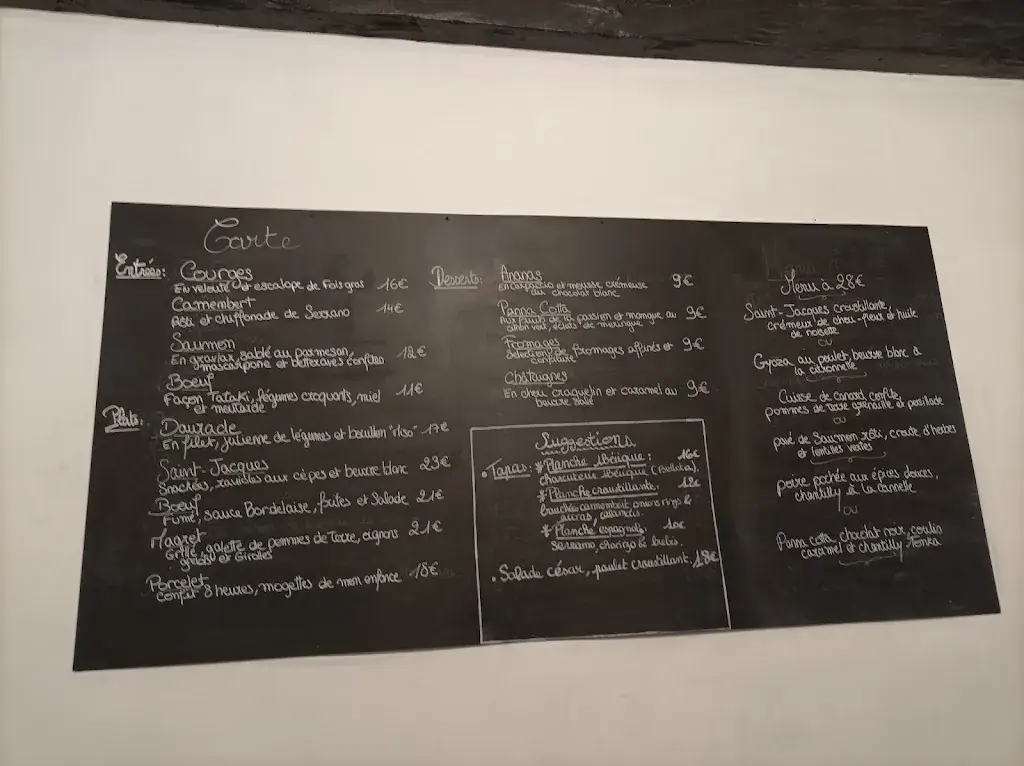 Carte
Entrées:
Courges
En velouté et escalope de Foie gras 16€
Camembert
Rôti et chiffonade de Serrano 14€
Saumon
En gravlax, sablé au parmesan,
mascarpone et betteraves confites 12€
Boeuf
Façon Tataki, légumes croquants, miel
et moutarde 11€
Plats:
Daurade
En filet, julienne de légumes et bouillon 17€
Saint-Jacques
Snackées, ravioles aux cèpes et beurre blanc 23€
Boeuf
Fumé, sauce Bordelaise, frites et Salade 21€
Magret
Grillé, galette de pommes de terre, oignons
grillés et Girolles 21€
Porcelet
confit 8 heures, mogettes de mon enfance 18€
Desserts:
Ananas
En carpaccio et mousse crémeuse
au chocolat blanc 9€
Panna Cotta
Aux fruits de la passion et mangue au
citron vert, éclats de meringue 9€
Fromages
Sélection de fromages affinés et
confiture 9€
Châtaignes
En chou craquelin et caramel au
beurre salé 9€
Suggestions
• Tapas: * Planche ibérique: 16€
charcuterie ibérique (Bellota),
* Planche croustillante: 12€
bouchées camembert, onions rings &
calamars.
* Planche espagnole 10€
serrano, chorizo &
• Salade césar, poulet croustillant 18€
Menu à 28€
Saint-Jacques croustillante,
crémeux de chou-fleur et huile
de noisette
ou
Gyoza au poulet, beurre blanc à
la
Cuisse de canard confite,
pommes de terre grenaille et persillade
ou
pavé de Saumon rôti, croute d'herbes
et lentilles vertes
poire pochée aux épices douces,
chantilly à la cannelle
ou
Panna cotta, chocolat noir, coulis
caramel et chantilly Tonka